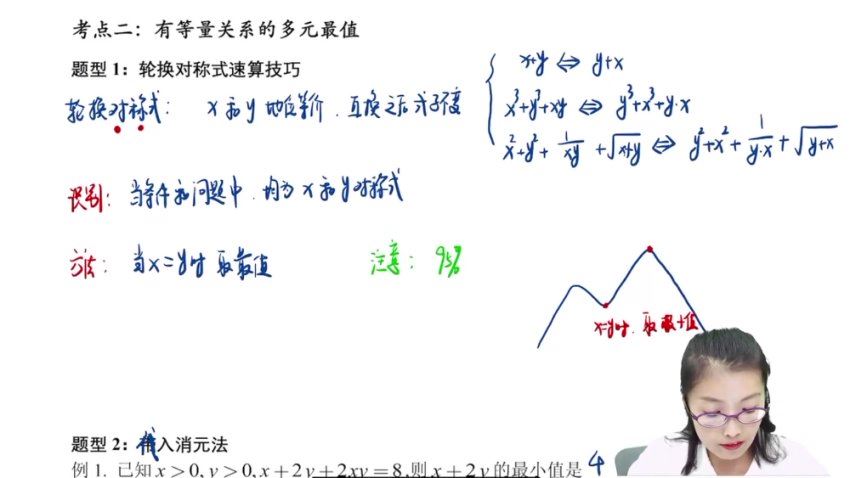 考点二：有等量关系的多元最值
题型 1：轮换对称式速算技巧
轮换对称式： x 和 y 地位等价．互换之后式子不变
x+y ⇔ y+x
x³+y³+xy ⇔ y³+x³+y·x
x²+y²+ 1/xy +√x+y ⇔ y²+x²+ 1/y·x +√y+x
识别： 当条件和问题中．均为 x 和 y 对称式
方法： 当x=y时 取最值
注意： 95%
x=y时．取最小值
题型 2：代入消元法
例 1. 已知 x > 0, y > 0, x + 2y + 2xy = 8,则 x + 2y 的最小值是 4